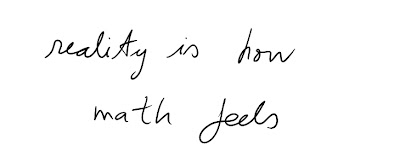 reality is how
math feels